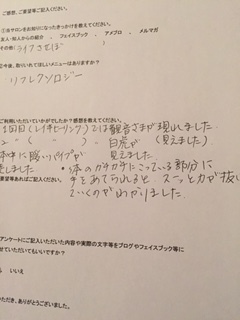 ご感想、ご要望等ご記入ください。
①当サロンをお知りになったきっかけを教えてください。
友人・知人からの紹介 ・ フェイスブック ・ アメブロ ・ メルマガ
その他( ライブさせぼ )
②今後、取りいれてほしいメニューはありますか?
リフレクソロジー
ご利用いただいていかがでしたか?感想を教えてください。
1回目(レイキヒーリング)では観音さまが現れました。
2 〃 ( 〃 ) 〃 白虎が (見えました)
体中に パイプが 見えました
要望等あればご記入ください。
・体のガチガチにこっている部分に
手をあてられると スーッと力が抜け
ていくのがわかりました。
アンケートにご記入いただいた内容や実際の文字等をブログやフェイスブック等に
せていただいてもいいですか?
いいえ
いただき、ありがとうございました。